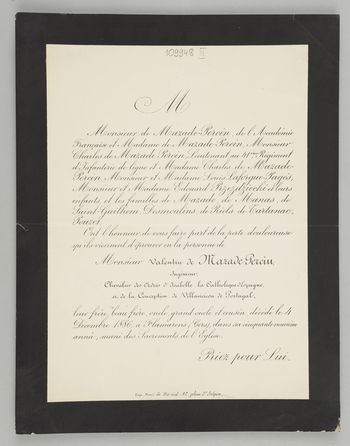 109948 II
M
Monsieur de Mazade-Percin, de l'Académie
Française et Madame de Mazade Percin, Monsieur
Charles de Mazade Percin, Lieutenant au 41me Régiment
d'Infanterie de ligne et Madame Charles de Mazade-
Percin, Monsieur et Madame Louis Laforgue-Pagès,
Monsieur et Madame Edouard et leurs
enfants et les familles de Mazade, de Manas, de
Saint-Guilhem, Desmoulins de Riols, de Tarlanac,
Pouzet,
Ont l'honneur de vous faire part de la perte douloureuse
qu'ils viennent d'éprouver en la personne de
Monsieur Valentin de Mazade-Percin,
Ingénieur,
Chevalier des Ordres d'Isabelle la Catholique d'Espagne,
et de la Conception de Villaviciosa de Portugal,
leur frère, beau frère, oncle, grand oncle et cousin, décédé le 4
Décembre 1886, à Flamarens (Gers), dans sa cinquante neuvième
année, muni des Sacrements de l'Eglise.
Priez pour Lui.